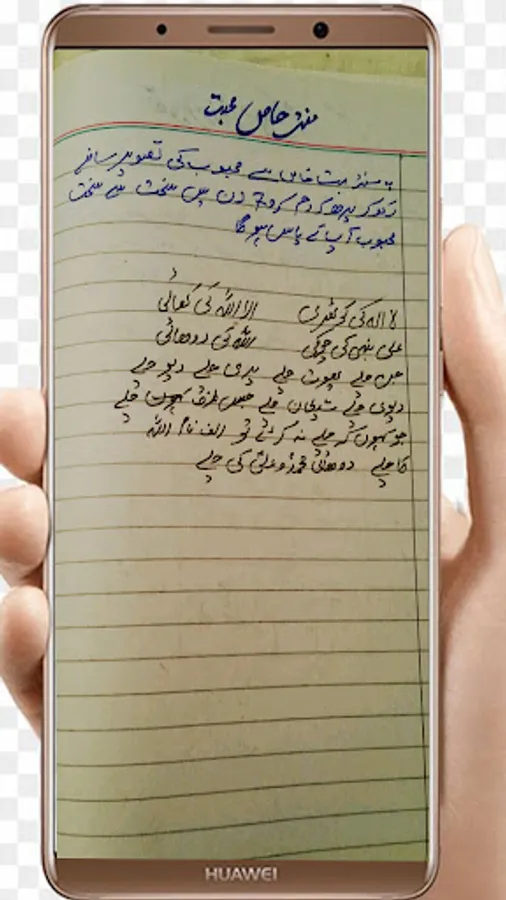 منتر خاص محبت
یہ منتر بہت خاص ہے محبوب کی تصویر سامنے
رکھ کر پڑھ کر دم کرو 7 دن میں سخت سے سخت
محبوب آپ کے پاس ہو گا
لا الہ کی کوٹھری الا اللہ کی کھائی
علی نبی کی چوکی اللہ کی دوھائی
جن چلے بھوت چلے پری چلے دیو چلے
دیوی چلے شیطان چلے جس طرف کہوں چلے
جو کہوں کر چلے نہ کرئے تو الف نام اللہ
کا چلے دوھائی محمد و علی کی چلے
HUAWEI